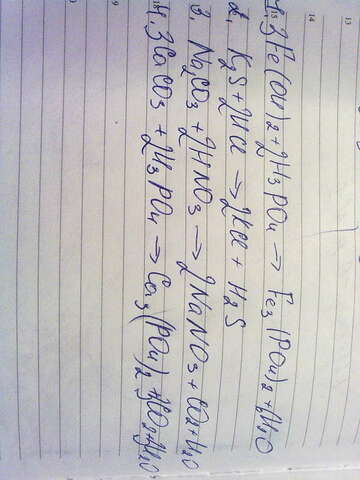 1. 3Fe(OH)2 + 2H3PO4 → Fe3(PO4)2 + 6H2O
2. K2S + 2HCl → 2KCl + H2S
3. Na2CO3 + 2HNO3 → 2NaNO3 + CO2 + H2O
4. 3CaCO3 + 2H3PO4 → Ca3(PO4)2 + 3CO2 + 3H2O
13
14
15
9